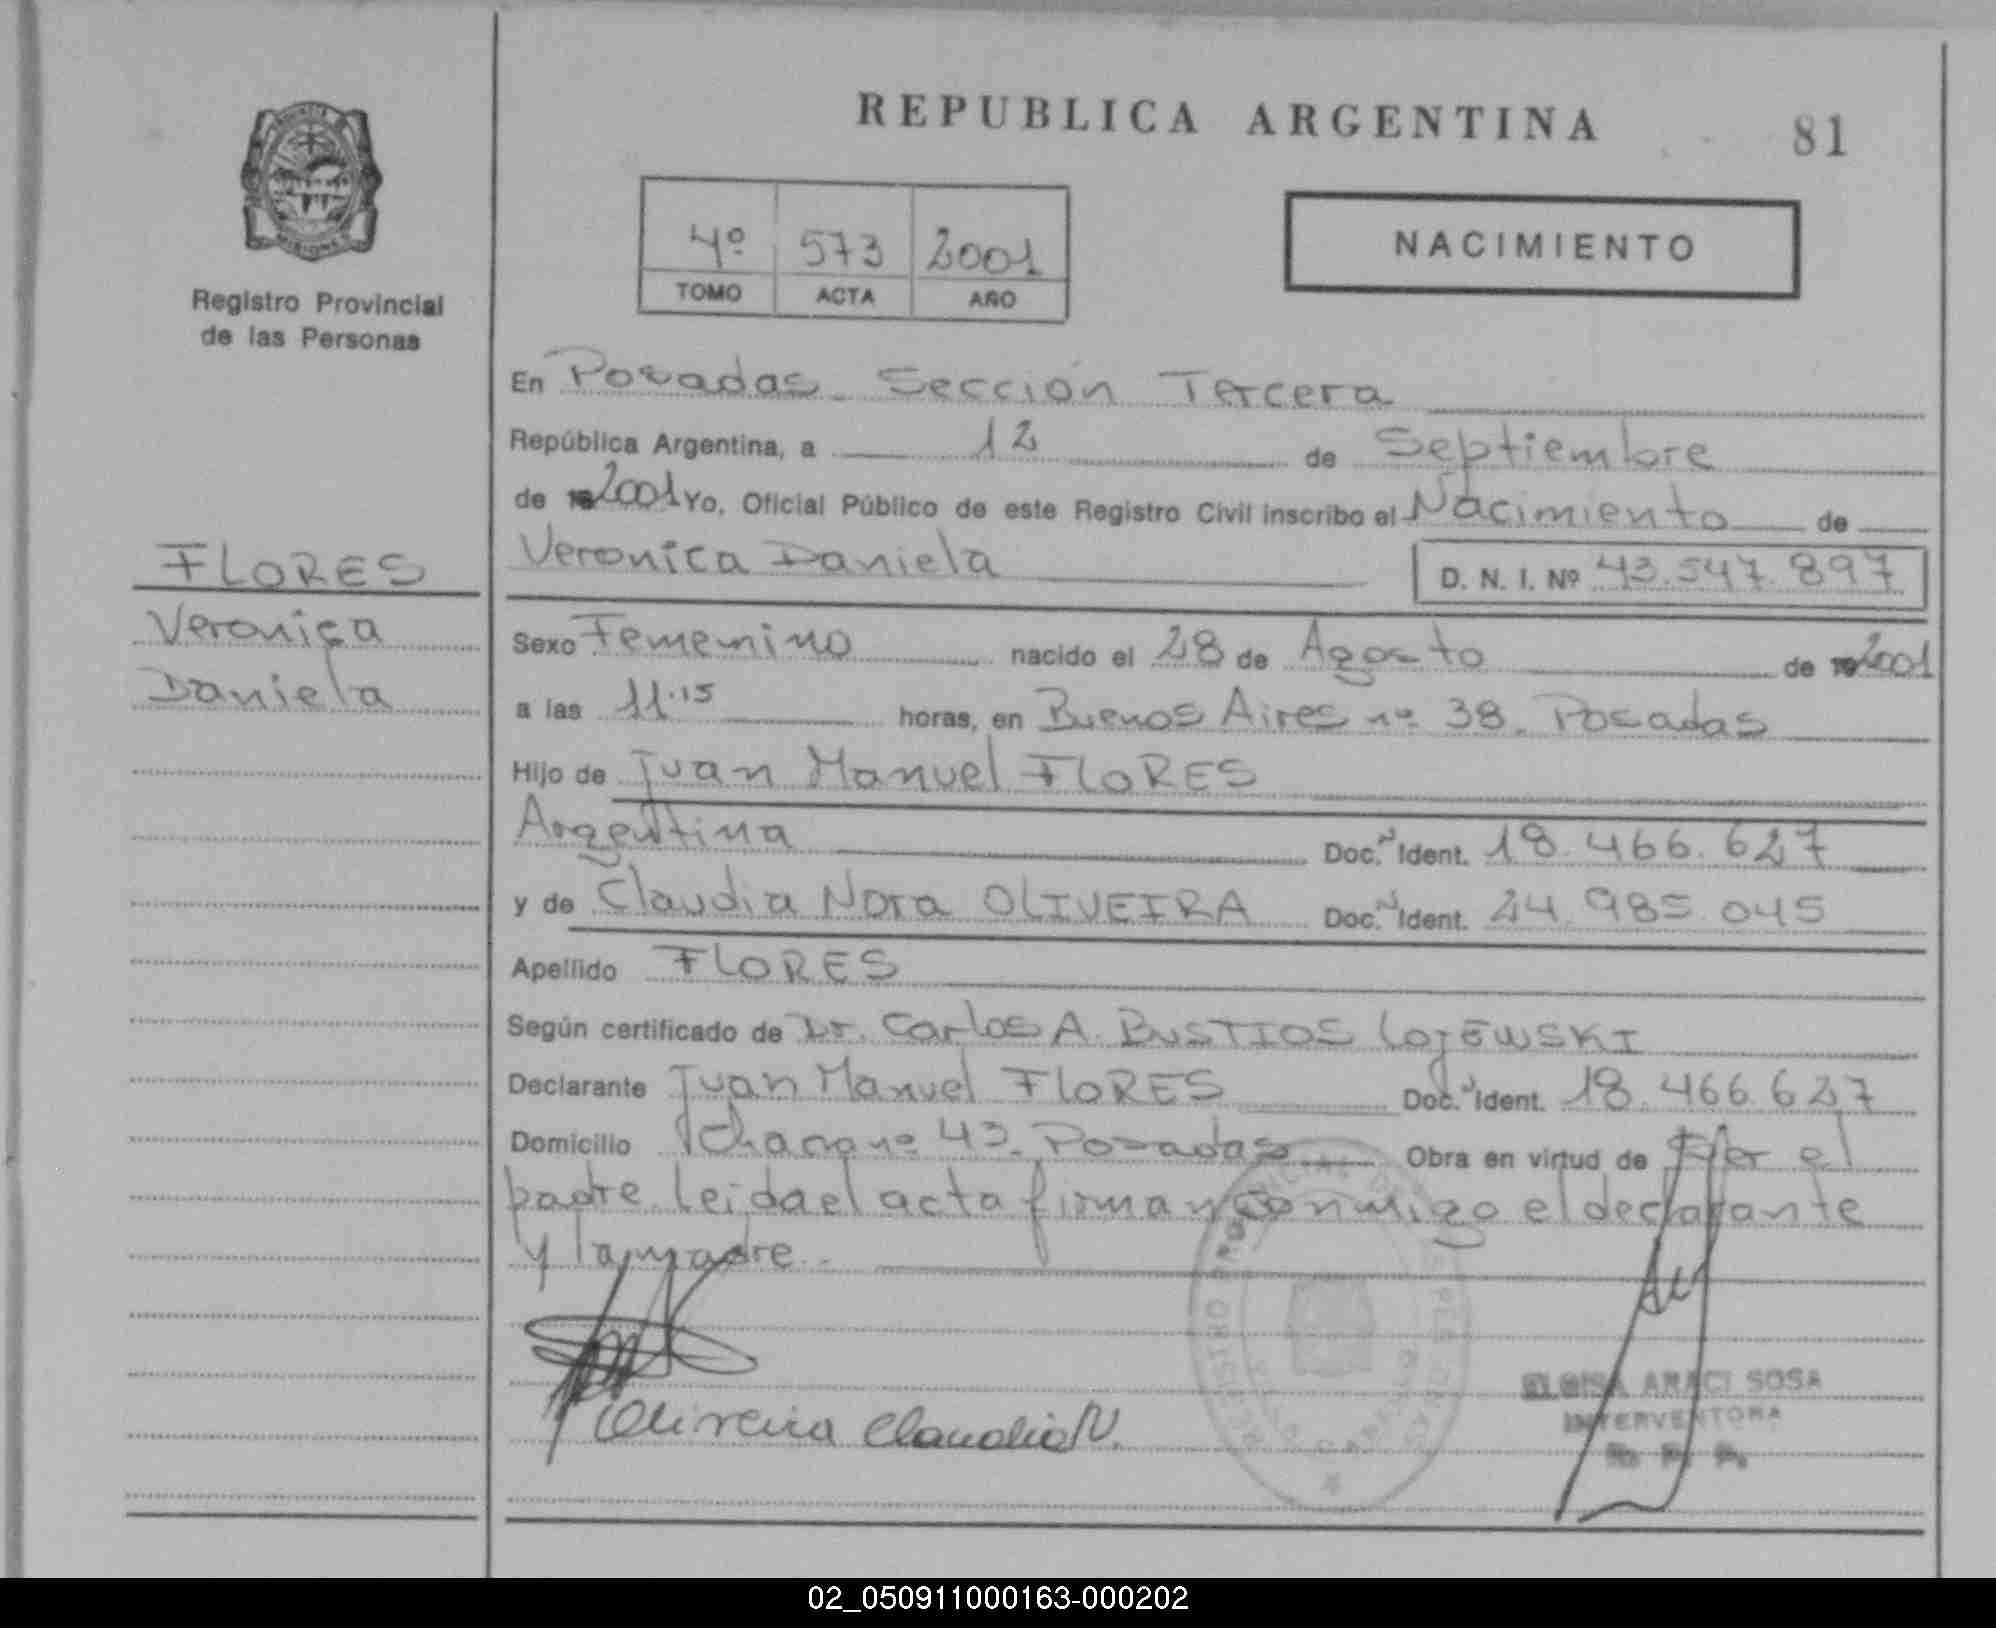 REPUBLICA ARGENTINA
81
4º 573 2001
TOMO ACTA AÑO
NACIMIENTO
MISIONES
Registro Provincial
de las Personas
En Posadas. Sección Tercera
República Argentina, a 12 de Septiembre
de 19 2001 Yo, Oficial Público de este Registro Civil inscribo el Nacimiento de
Veronica Daniela D. N. I. Nº 43.547.897
FLORES
Veronica
Daniela
Sexo Femenino nacido el 28 de Agosto de 19 2001
a las 11.15 horas, en Buenos Aires nº 38. Posadas
Hijo de Juan Manuel FLORES
Argentina Doc. Ident. 18.466.627
y de Claudia Nora OLIVEIRA Doc. Ident. 24.985.045
Apellido FLORES
Según certificado de Dr. Carlos A. BUSTIOS LOJEWSKI
Declarante Juan Manuel FLORES Doc. Ident. 18.466.627
Domicilio Chacra nº 43. Posadas Obra en virtud de Ser el
padre. Leida el acta firman conmigo el declarante
y la madre.
Oliveira Claudia N.
ELOISA ARACI SOSA
INTERVENTORA
R. P. P.
02_050911000163-000202